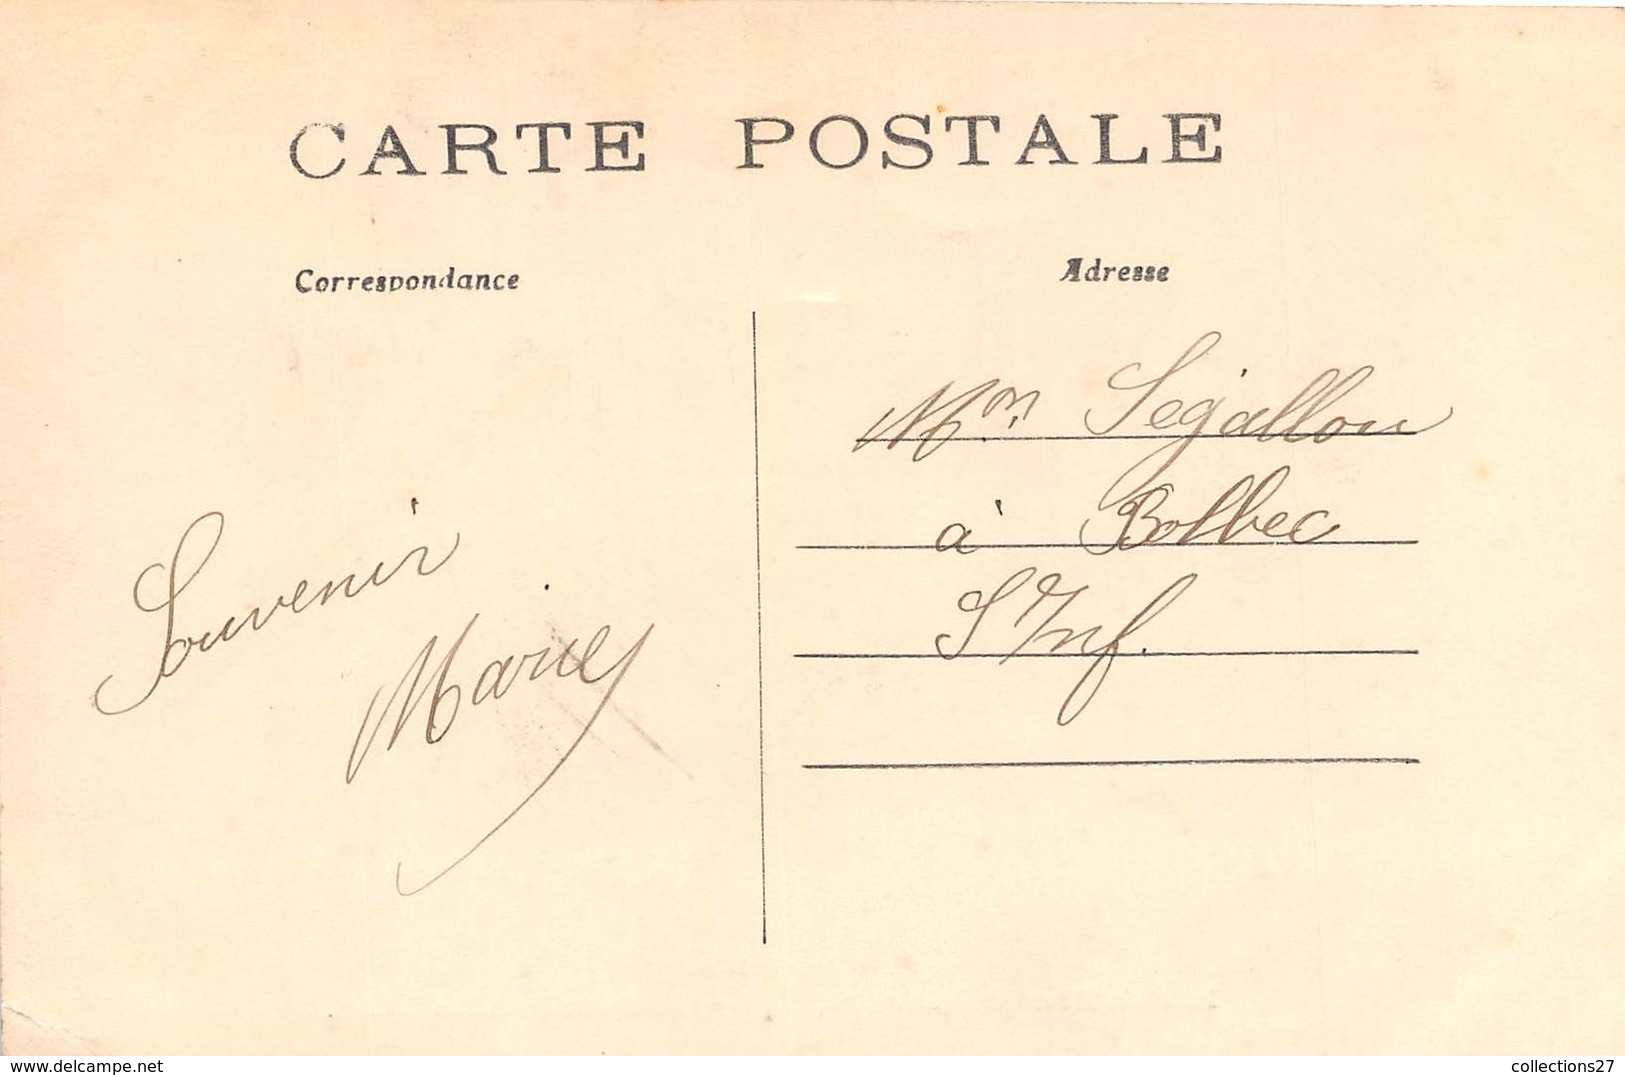 CARTE POSTALE
Correspondance
Adresse
Souvenir
Marie
Mm Ségallou
à Bolbec
S Inf.
www.delcampe.net
collections27